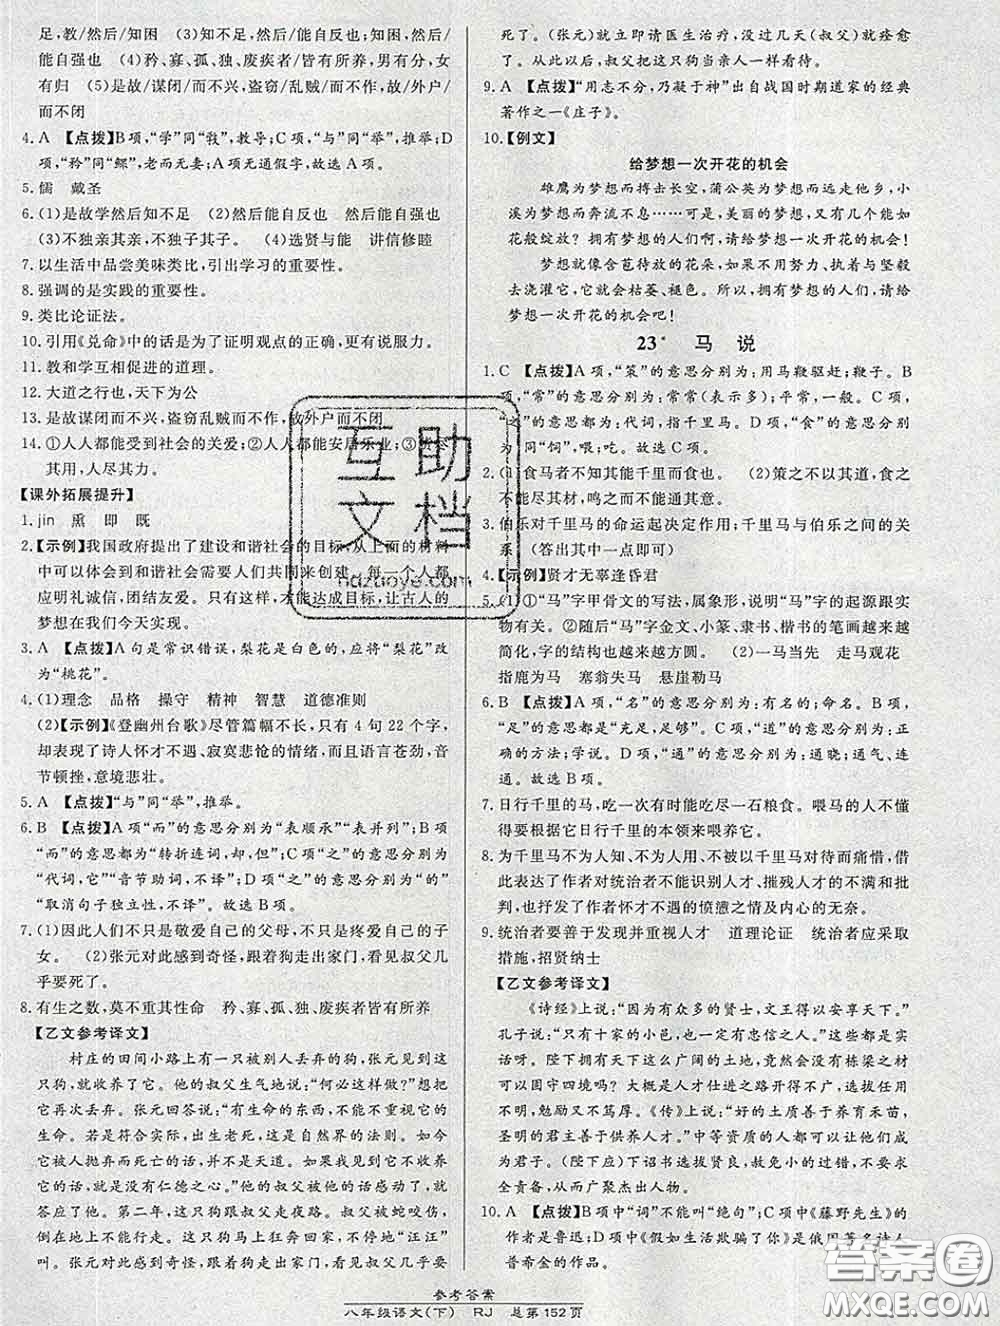 足,教/然后/知困　(3)知不足,然后/能自反也;知困,然后/
能自强也　(4)矜、寡、孤、独、废疾者/皆有所养,男有分,女
有归　(5)是故/谋闭/而不兴,盗窃/乱贼/而不作,故/外户/
而不闭
4. A　【点拨】B项,“学”同“敩”,教导;C项,“与”同“举”,推举;D
项,“矜”同“鳏”,老而无妻;A项无通假字,故选A项。
5. 儒　戴圣
6. (1)是故学然后知不足　(2)然后能自反也　然后能自强也
(3)不独亲其亲,不独子其子。　(4)选贤与能　讲信修睦
7. 以生活中品尝美味类比,引出学习的重要性。
8. 强调的是实践的重要性。
9. 类比论证法。
10. 引用《兑命》中的话是为了证明观点的正确,更有说服力。
11. 教和学互相促进的道理。
12. 大道之行也,天下为公
13. 是故谋闭而不兴,盗窃乱贼而不作,故外户而不闭
14. ①人人都能受到社会的关爱;②人人都能安居乐业;③货尽
其用,人尽其力。
【课外拓展提升】
1. jìn　熏　即　既
2. 【示例】我国政府提出了建设和谐社会的目标,从上面的材料
中可以体会到和谐社会需要人们共同来创建。每一个人都
应明礼诚信,团结友爱。只有这样,才能达成目标,让古人的
梦想在我们今天实现。
3. A　【点拨】A句是常识错误,梨花是白色的,应将“梨花”改
为“桃花”。
4. (1)理念　品格　操守　精神　智慧　道德准则
(2)【示例】《登幽州台歌》尽管篇幅不长,只有4句22个字,
却表现了诗人怀才不遇、寂寞悲怆的情绪,而且语言苍劲,音
节顿挫,意境悲壮。
5. A　【点拨】“与”同“举”,推举。
6. B　【点拨】A项“而”的意思分别为“表顺承”“表并列”;B项
“而”的意思都为“转折连词,却,但”;C项“之”的意思分别为
“代词,它”“音节助词,不译”;D项“之”的意思分别为“的”
“取消句子独立性,不译”。故选B项。
7. (1)因此人们不只是敬爱自己的父母,不只是疼爱自己的子
女。　(2)张元对此感到奇怪,跟着狗走出家门,看见叔父几
乎要死了。
8. 有生之数,莫不重其性命　矜、寡、孤、独、废疾者皆有所养
【乙文参考译文】
村庄的田间小路上有一只被别人丢弃的狗,张元见到这
只狗,就把它收养了。他的叔父生气地说:“何必这样做?”想要
再次丢弃。张元回答说:“有生命的东西,不能不重视它的
生命。若是符合实际,出生老死,这是自然界的法则。如今它
被人抛弃而死亡的话,并不是天道。如果我见到它不收养它
的话,就是没有仁德之心。”他叔父被他的话感动了,就
答应了他。第二年,这只狗跟叔父走夜路。叔父被蛇咬伤,
倒在地上不能行走。这只狗马上狂奔回家,不停“汪汪”
叫。张元对此感到奇怪,跟着狗走出家门,看见叔父几乎要
死了。(张元)就立即请医生治疗,没过几天(叔父)就痊愈
了。从此以后,叔父把这只狗当亲人一样看待。
9. A　【点拨】“用志不分,乃凝于神”出自战国时期道家的经典
著作之一《庄子》。
10. 【例文】
给梦想一次开花的机会
雄鹰为梦想而搏击长空,蒲公英为梦想而远走他乡,小
溪为梦想而奔流不息……可是,美丽的梦想,又有几个能如
花般绽放?拥有梦想的人们啊,请给梦想一次开花的机会!
梦想就像含苞待放的花朵,如果不用努力、执着与坚毅
去浇灌它,它就会枯萎、褪色。所以,拥有梦想的人们,请给
梦想一次开花的机会吧!
23* 马　说
1. C　【点拨】A项,“策”的意思分别为:用马鞭驱赶;鞭子。B
项,“常”的意思分别为:常常(表示多);平常,一般。C项,
“之”的意思都为:代词,指千里马。D项,“食”的意思分别为
同“饲”,喂;吃。故选C项。
2. (1)食马者不知其能千里而食也。　(2)策之不以其道,食之
不能尽其材,鸣之而不能通其意。
3. 伯乐对千里马的命运起决定作用;千里马与伯乐之间的关
系　(答出其中一点即可)
4. 【示例】贤才无辜逢昏君
5. (1)①“马”字甲骨文的写法,属象形,说明“马”字的起源跟实
物有关。②随后“马”字金文、小篆、隶书、楷书的笔画越来越
简化,字的结构也越来越方圆。　(2)一马当先　走马观花
指鹿为马　塞翁失马　悬崖勒马
6. B　【点拨】A项,“名”的意思分别为:有名的;命名。B项,
“足”的意思都是“充足,足够”。C项,“道”的意思分别为:正
确的方法;学说。D项,“通”的意思分别为:通晓;通气、连
通。故选B项。
7. 日行千里的马,一次有时能吃尽一石粮食。喂马的人不懂
得要根据它日行千里的本领来喂养它。
8. 为千里马不为人知、不为人用、不被以千里马对待而痛惜,借
此表达了作者对统治者不能识别人才、摧残人才的不满和批
判,也抒发了作者怀才不遇的愤懑之情及内心的无奈。
9. 统治者要善于发现并重视人才　道理论证　统治者应采取
措施,招贤纳士
【乙文参考译文】
《诗经》上说:“因为有众多的贤士,文王得以安享天下。”
孔子说:“只有十家的小邑,也一定有忠信之人。”这些都是实
话呀。陛下拥有这么广阔的土地,竟然没有栋梁之材
可以固守四境吗?大概是人才任进之路开得不广,选拔任用
不明,勉励又不笃厚。《传》上说:“好的土质善于养育禾苗,
圣明的君主善于供养人才。”中等资质的人都可以勉励成为
君子。(陛下应)下诏书选拔贤良,赦免小的过错,不求
全责备,从而广聚杰出人物。
10. A　【点拨】B项中“词”不能叫“绝句”;C项中《藤野先生》
的作者是鲁迅;D项中《假如生活欺骗了你》是俄国著名诗人
普希金的作品。
参考答案
八年级语文(下)　RJ　总第152页
互助文档
hdzuoye.com
答案圈
MXQE.COM